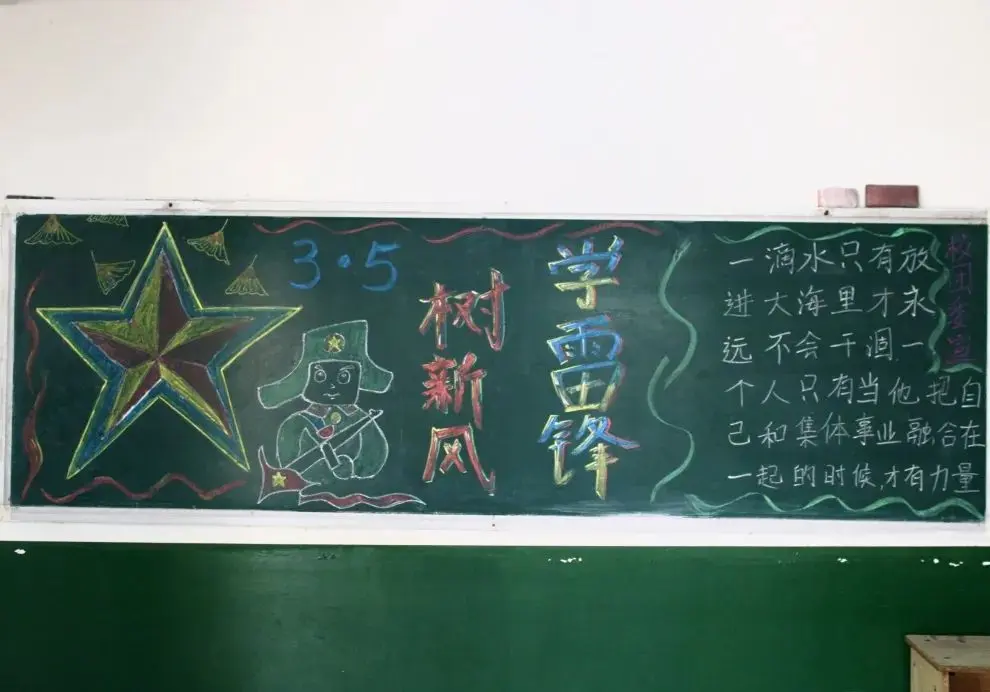 3·5
学雷锋
树新风
一滴水只有放
进大海里才永
远不会干涸,一
个人只有当他把自
己和集体事业融合在
一起的时候,才有力量
校团委宣